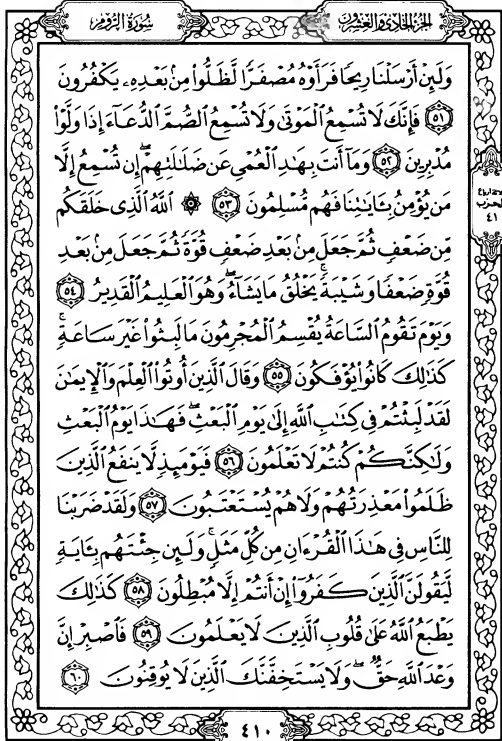 سُورَةُ الرُّومِ
الجُزْءُ الحَادِي وَالعِشْرُونَ
وَلَئِنْ أَرْسَلْنَا رِيحًا فَرَأَوْهُ مُصْفَرًّا لَّظَلُّوا۟ مِنۢ بَعْدِهِۦ يَكْفُرُونَ
٥١ فَإِنَّكَ لَا تُسْمِعُ ٱلْمَوْتَىٰ وَلَا تُسْمِعُ ٱلصُّمَّ ٱلدُّعَآءَ إِذَا وَلَّوْا۟
مُدْبِرِينَ ٥٢ وَمَآ أَنتَ بِهَٰدِ ٱلْعُمْىِ عَن ضَلَٰلَتِهِمْ ۖ إِن تُسْمِعُ إِلَّا
مَن يُؤْمِنُ بِـَٔايَٰتِنَا فَهُم مُّسْلِمُونَ ٥٣ ۞ ٱللَّهُ ٱلَّذِى خَلَقَكُم
مِّن ضَعْفٍ ثُمَّ جَعَلَ مِنۢ بَعْدِ ضَعْفٍ قُوَّةً ثُمَّ جَعَلَ مِنۢ بَعْدِ
قُوَّةٍ ضَعْفًا وَشَيْبَةً ۚ يَخْلُقُ مَا يَشَآءُ ۖ وَهُوَ ٱلْعَلِيمُ ٱلْقَدِيرُ ٥٤
وَيَوْمَ تَقُومُ ٱلسَّاعَةُ يُقْسِمُ ٱلْمُجْرِمُونَ مَا لَبِثُوا۟ غَيْرَ سَاعَةٍ ۚ
كَذَٰلِكَ كَانُوا۟ يُؤْفَكُونَ ٥٥ وَقَالَ ٱلَّذِينَ أُوتُوا۟ ٱلْعِلْمَ وَٱلْإِيمَٰنَ
لَقَدْ لَبِثْتُمْ فِى كِتَٰبِ ٱللَّهِ إِلَىٰ يَوْمِ ٱلْبَعْثِ ۖ فَهَٰذَا يَوْمُ ٱلْبَعْثِ
وَلَٰكِنَّكُمْ كُنتُمْ لَا تَعْلَمُونَ ٥٦ فَيَوْمَئِذٍ لَّا يَنفَعُ ٱلَّذِينَ
ظَلَمُوا۟ مَعْذِرَتُهُمْ وَلَا هُمْ يُسْتَعْتَبُونَ ٥٧ وَلَقَدْ ضَرَبْنَا
لِلنَّاسِ فِى هَٰذَا ٱلْقُرْءَانِ مِن كُلِّ مَثَلٍ ۚ وَلَئِن جِئْتَهُم بِـَٔايَةٍ
لَّيَقُولَنَّ ٱلَّذِينَ كَفَرُوٓا۟ إِنْ أَنتُمْ إِلَّا مُبْطِلُونَ ٥٨ كَذَٰلِكَ
يَطْبَعُ ٱللَّهُ عَلَىٰ قُلُوبِ ٱلَّذِينَ لَا يَعْلَمُونَ ٥٩ فَٱصْبِرْ إِنَّ
وَعْدَ ٱللَّهِ حَقٌّ ۖ وَلَا يَسْتَخِفَّنَّكَ ٱلَّذِينَ لَا يُوقِنُونَ ٦٠
الحزب
٤١
٤١٠